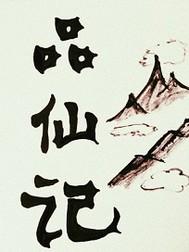 品仙记